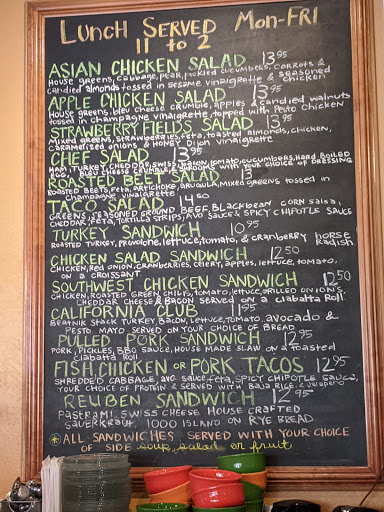 LUNCH SERVED MON-FRI
11 to 2
ASIAN CHICKEN SALAD 13.95
House greens, cabbage, pear, pickled cucumbers, carrots &
candied almonds tossed in sesame vinaigrette & seasoned chicken
APPLE CHICKEN SALAD 13.95
House greens, bleu cheese crumble, apples & candied walnuts
tossed in champagne vinaigrette topped with Pesto Chicken
STRAWBERRY FIELDS SALAD 13.95
Mixed greens, strawberries, feta, toasted almonds, chicken,
caramelized onions & honey Dijon vinaigrette
CHEF SALAD 13.95
Ham, turkey, cheddar, swiss, bacon, tomato, cucumbers, hard boiled
egg, bleu cheese crumble, shrooms with your choice of DRESSING
ROASTED BEET SALAD 13
Roasted beets, feta, artichoke, arugula, mixed greens tossed in
champagne vinaigrette
TACO SALAD 14.50
GREENS, SEASONED GROUND BEEF, Black bean corn salsa,
cheddar, feta, tortilla strips, avo sauce & spicy chipotle sauce
TURKEY SANDWICH 10.95
ROASTED TURKEY, PROVOLONE, lettuce, tomato, & cranberry horse radish
CHICKEN SALAD SANDWICH 12.50
Chicken, red onion, cranberries, celery, apples, lettuce, tomato,
on a croissant
SOUTHWEST CHICKEN SANDWICH 12.50
Chicken, roasted green chilis, tomato, lettuce, grilled onions,
cheddar cheese & bacon served on a ciabatta roll
CALIFORNIA CLUB 11.95
Beatnik stack turkey, bacon, lettuce, tomato, avocado &
pesto mayo served on your choice of bread
PULLED PORK SANDWICH 12.95
Pork, pickles, BBQ sauce, house made slaw on a toasted
ciabatta roll
FISH, CHICKEN or PORK TACOS 12.95
Shredded cabbage, avo sauce, feta, spicy chipotle sauce,
your choice of protein & served with Baja Rice & Jalapeno
REUBEN SANDWICH 12.95
Pastrami, swiss cheese house crafted
sauerkraut, 1000 Island on rye bread
* ALL SANDWICHES SERVED WITH YOUR CHOICE
OF SIDE soup, salad or fruit